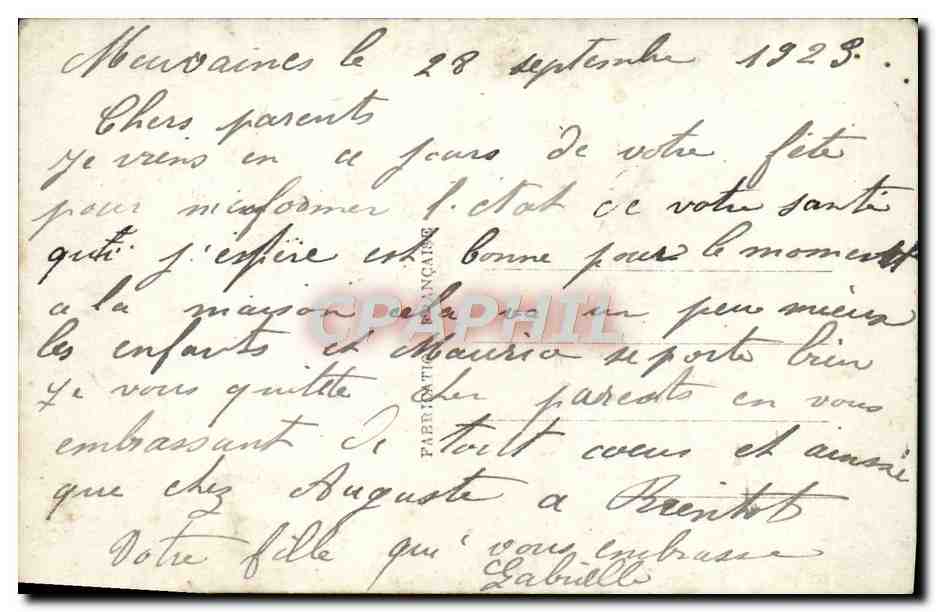 Meuvaines le 28 septembre 1923.
Chers parents
Je viens en ce jours de votre fête
pour m'informer l'etat de votre santé
quii j'espère est bonne pour le moment
a la maison cela va un peu mieux
les enfants et Maurice se porte bien
Je vous quitte cher parents en vous
embrassant de tout coeur et ainsie
que chez Auguste a Bientot
Votre fille qui vous embrasse
Gabrielle
FABRICATION FRANÇAISE
CPAPHIL